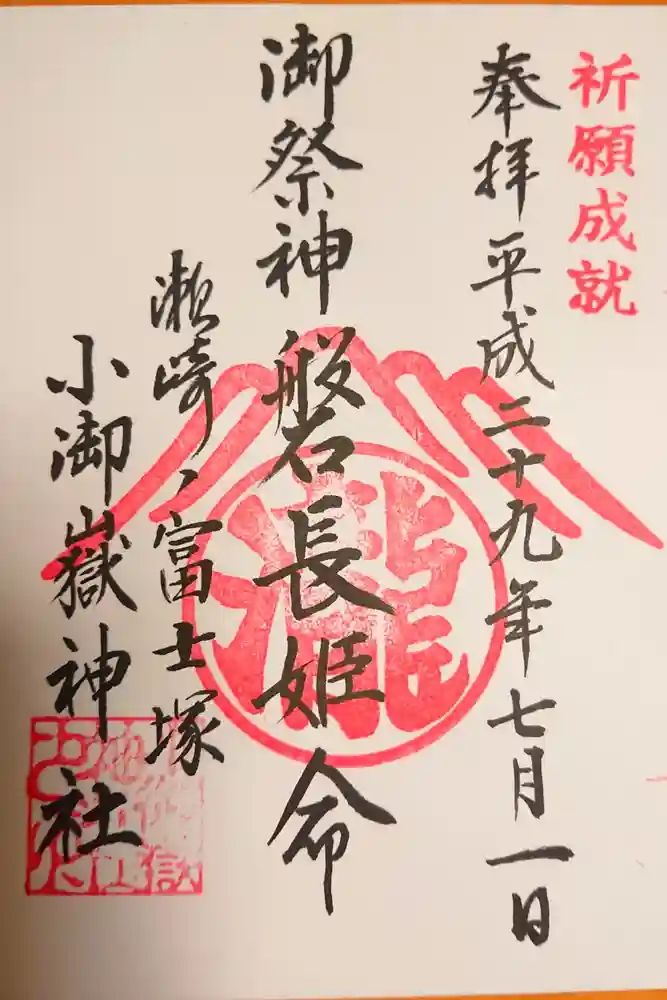 祈願成就
奉拝 平成二十九年七月一日
御祭神 磐長姫命
瀧
瀬崎ノ富士塚
小御嶽神社